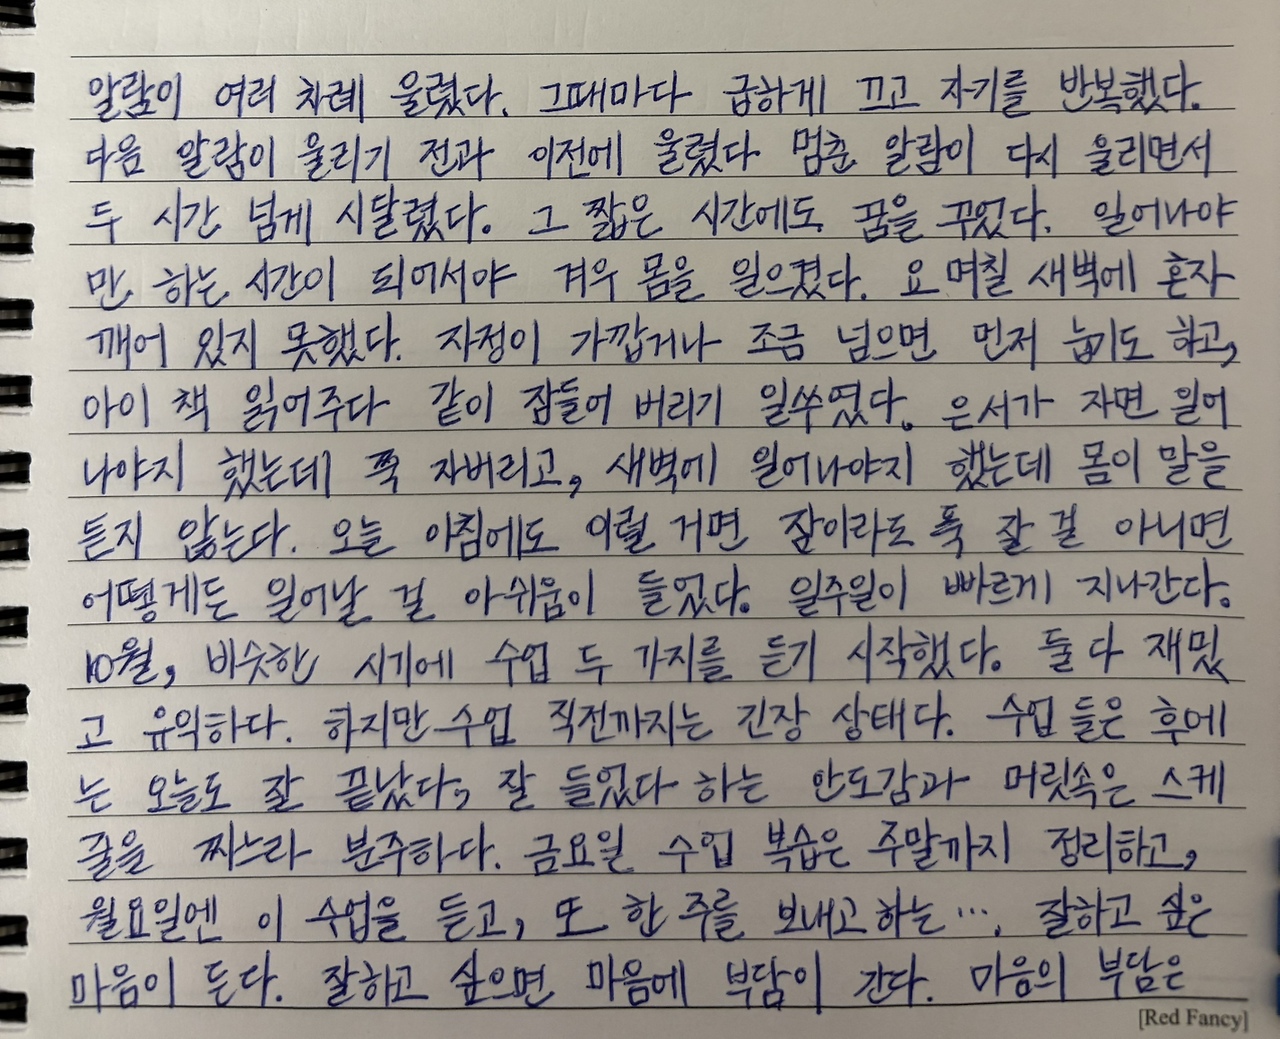 알람이 여러 차례 울렸다. 그때마다 급하게 끄고 자기를 반복했다.
다음 알람이 울리기 전과 이전에 울렸다 멈춘 알람이 다시 울리면서
두 시간 넘게 시달렸다. 그 짧은 시간에도 꿈을 꾸었다. 일어나야
만 하는 시간이 되어서야 겨우 몸을 일으켰다. 요 며칠 새벽에 혼자
깨어 있지 못했다. 자정이 가깝거나 조금 넘으면 먼저 눕기도 하고,
아이 책 읽어주다 같이 잠들어 버리기 일쑤였다. 은서가 자면 일어
나야지 했는데 쭉 자버리고, 새벽에 일어나야지 했는데 몸이 말을
듣지 않는다. 오늘 아침에도 이럴 거면 잠이라도 푹 잘 걸 아니면
어떻게든 일어날 걸 아쉬움이 들었다. 일주일이 빠르게 지나간다.
10월, 비슷한 시기에 수업 두 가지를 듣기 시작했다. 둘 다 재밌
고 유익하다. 하지만 수업 직전까지는 긴장 상태다. 수업 들은 후에
는 오늘도 잘 끝났다, 잘 들었다 하는 안도감과 머릿속은 스케
줄을 짜느라 분주하다. 금요일 수업 복습은 주말까지 정리하고,
월요일엔 이 수업을 듣고, 또 한 주를 보내고 하는 …. 잘하고 싶은
마음이 든다. 잘하고 싶으면 마음에 부담이 간다. 마음의 부담은
[Red Fancy]